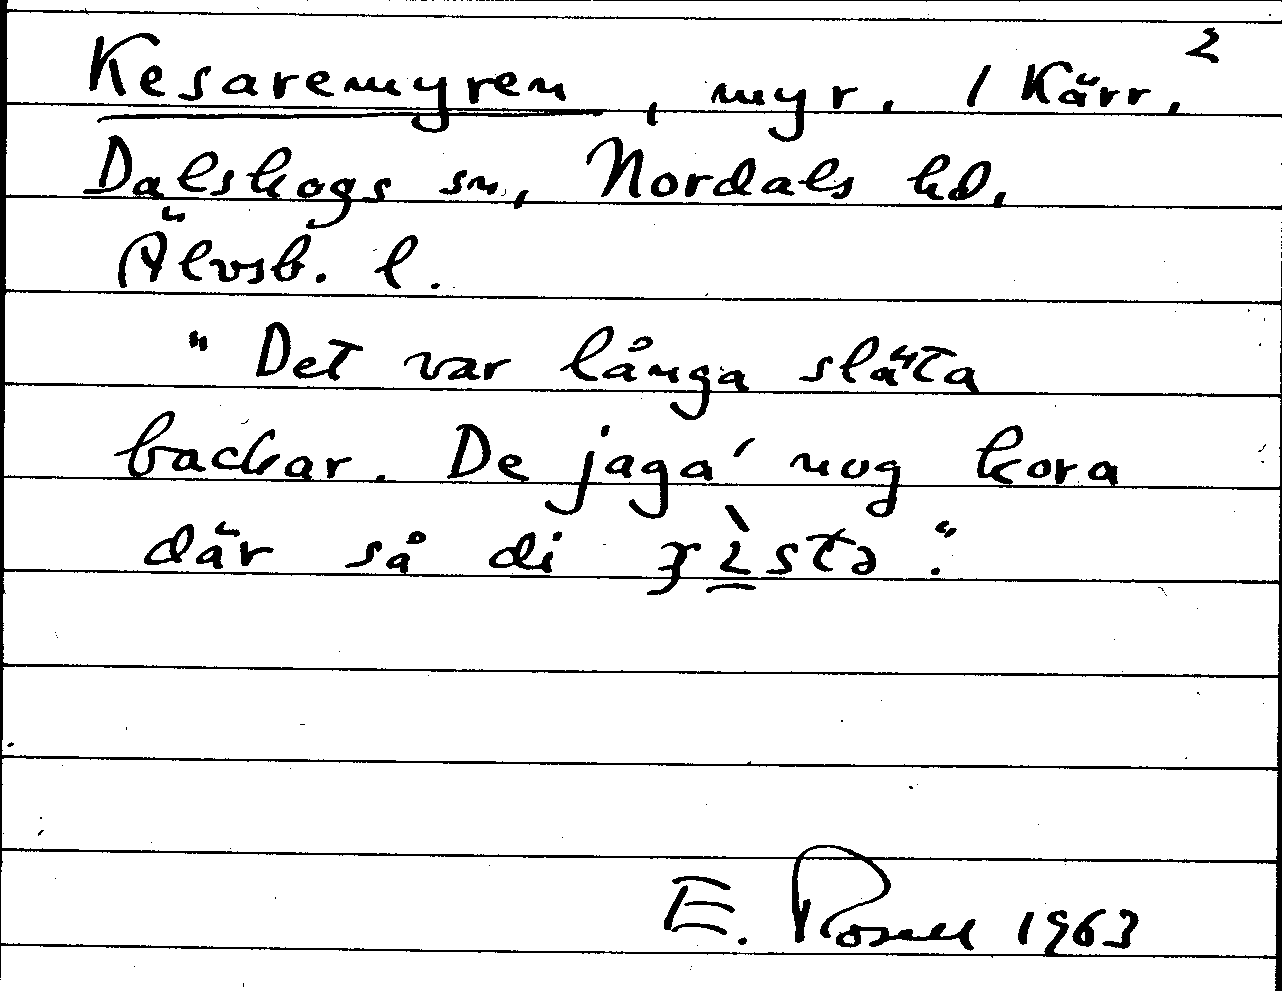 2
Kesaremyren, myr. / Kärr.
Dalskogs sn, Nordals hd.
Älvsb. l.
"Det var långa släta
backar. De jaga' nog kora
där så di
E. Rosell 1963